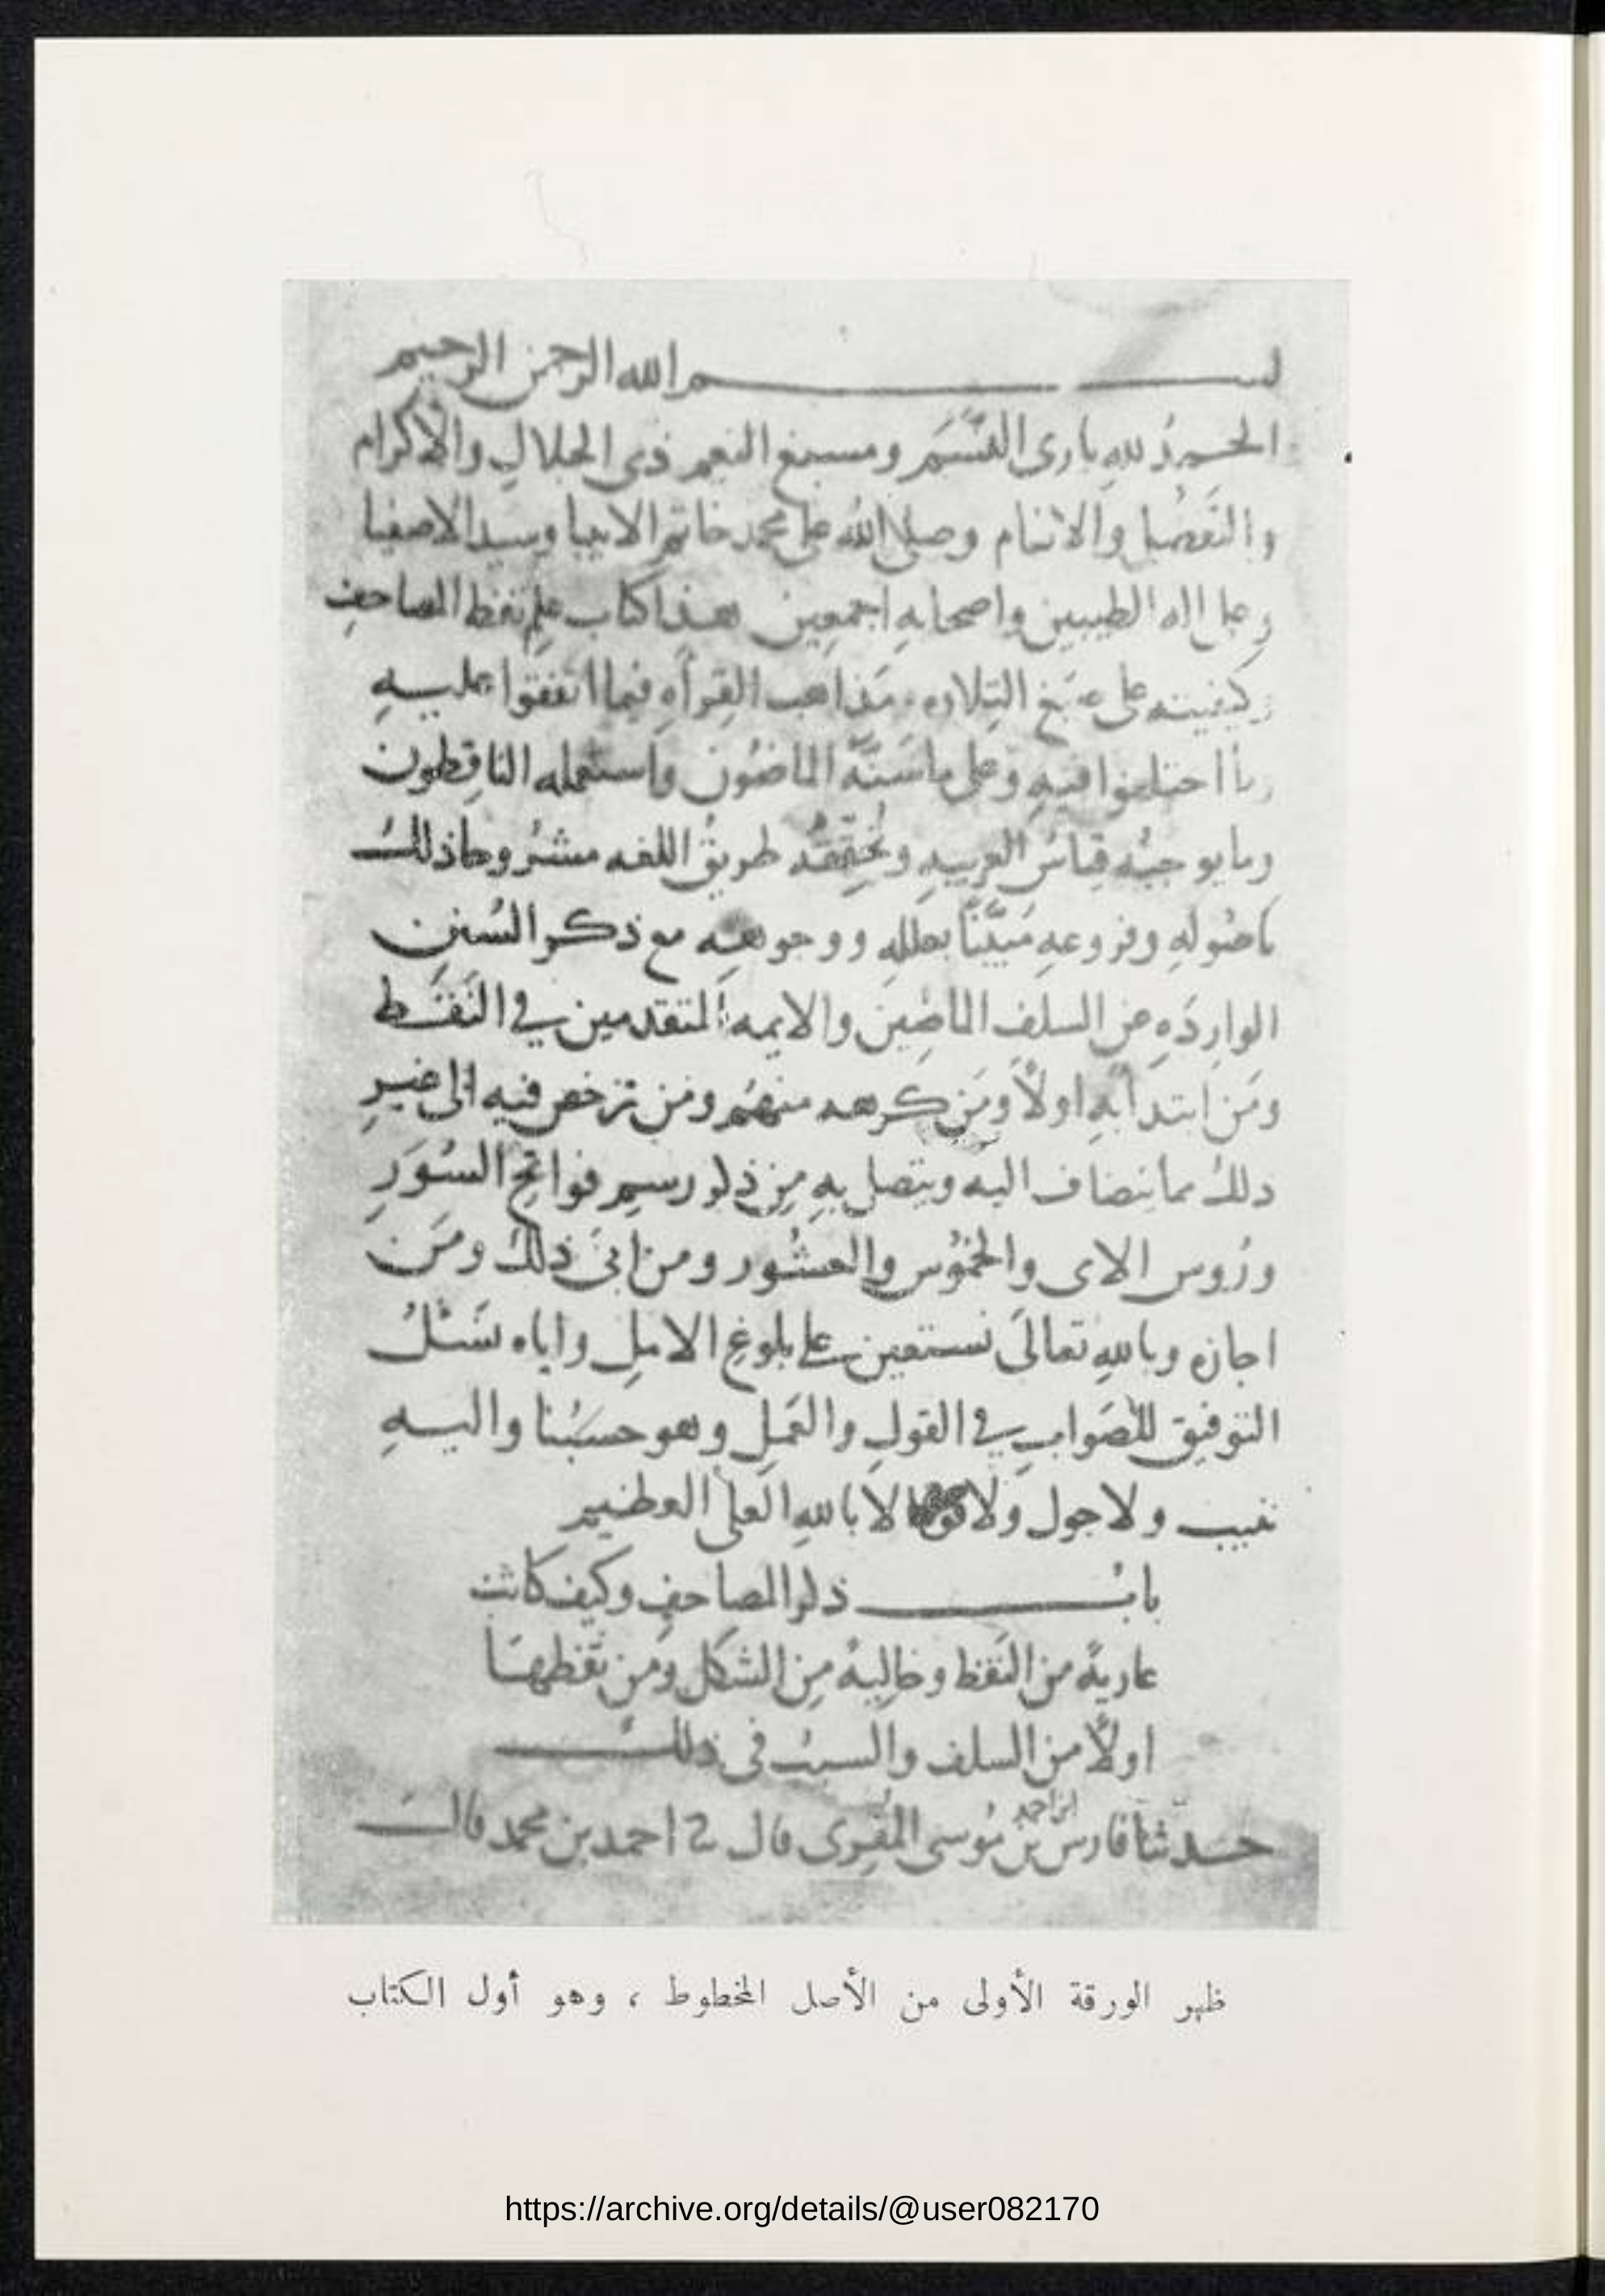 بسم الله الرحمن الرحيم
الحمدُ للهِ بارى النَّسَمِ ومسبغ النعم ذى الجلالِ والاكرام
والتفضيل والانعام وصلى الله على محمد خاتم الانبيا وسيد الاصفيا
وعلى اله الطيبين واصحابهِ اجمعين هذا كتاب علم نقط المصاحفِ
وكيفيته على صيغ التِلاوه ومَذاهب القرأهِ فيما اتفقوا عليهِ
وما اختلفوا فيهِ وعلى ما سَنَّهُ الماضُون واستعمله الناقِطون
وما يوجبُه قياسُ العربيهِ وتُحَقِّقُه طريقُ اللغه مشروحا ذلكَ
باصُولهِ وفروعهِ مبَيَّناً بعللهِ ووجوههِ مع ذكر السُننِ
الوارِدَهِ عن السلف الماضِينَ والايمه المتقدمين في النَقط
ومَن ابتدأ به اولاً ومَن كرهه منهُم ومَن ترخص فيه الى غيرِ
ذلكَ مما ينضاف اليه ويتصل بهِ مِن ذكر رسمِ فواتحِ السُوَرِ
ورُوس الاى والخمُوس والعشُور ومن ابىَ ذلكَ ومَن
اجازه وباللهِ تعالَى نستعين على بلوغِ الاملِ واياه نسَئلُ
التوفيق للصَوابِ في القولِ والعَمَلِ وهو حسبُنا واليهِ
ننيب ولا حول ولا قوة الا باللهِ العلى العظيم
بابُ ذكر المصاحفِ وكيف كانت
عاريةً من النَقط وخاليةً مِن الشكل ومَن نقَطهَا
اولاً من السلف والسببُ فى ذلكَ
حدثنا فارس بن احمد بن مُوسى المقرِى قال نا احمد بن محمد قالَ
ظهر الورقة الأولى من الأصل المخطوط ، وهو أول الكتاب
https://archive.org/details/@user082170